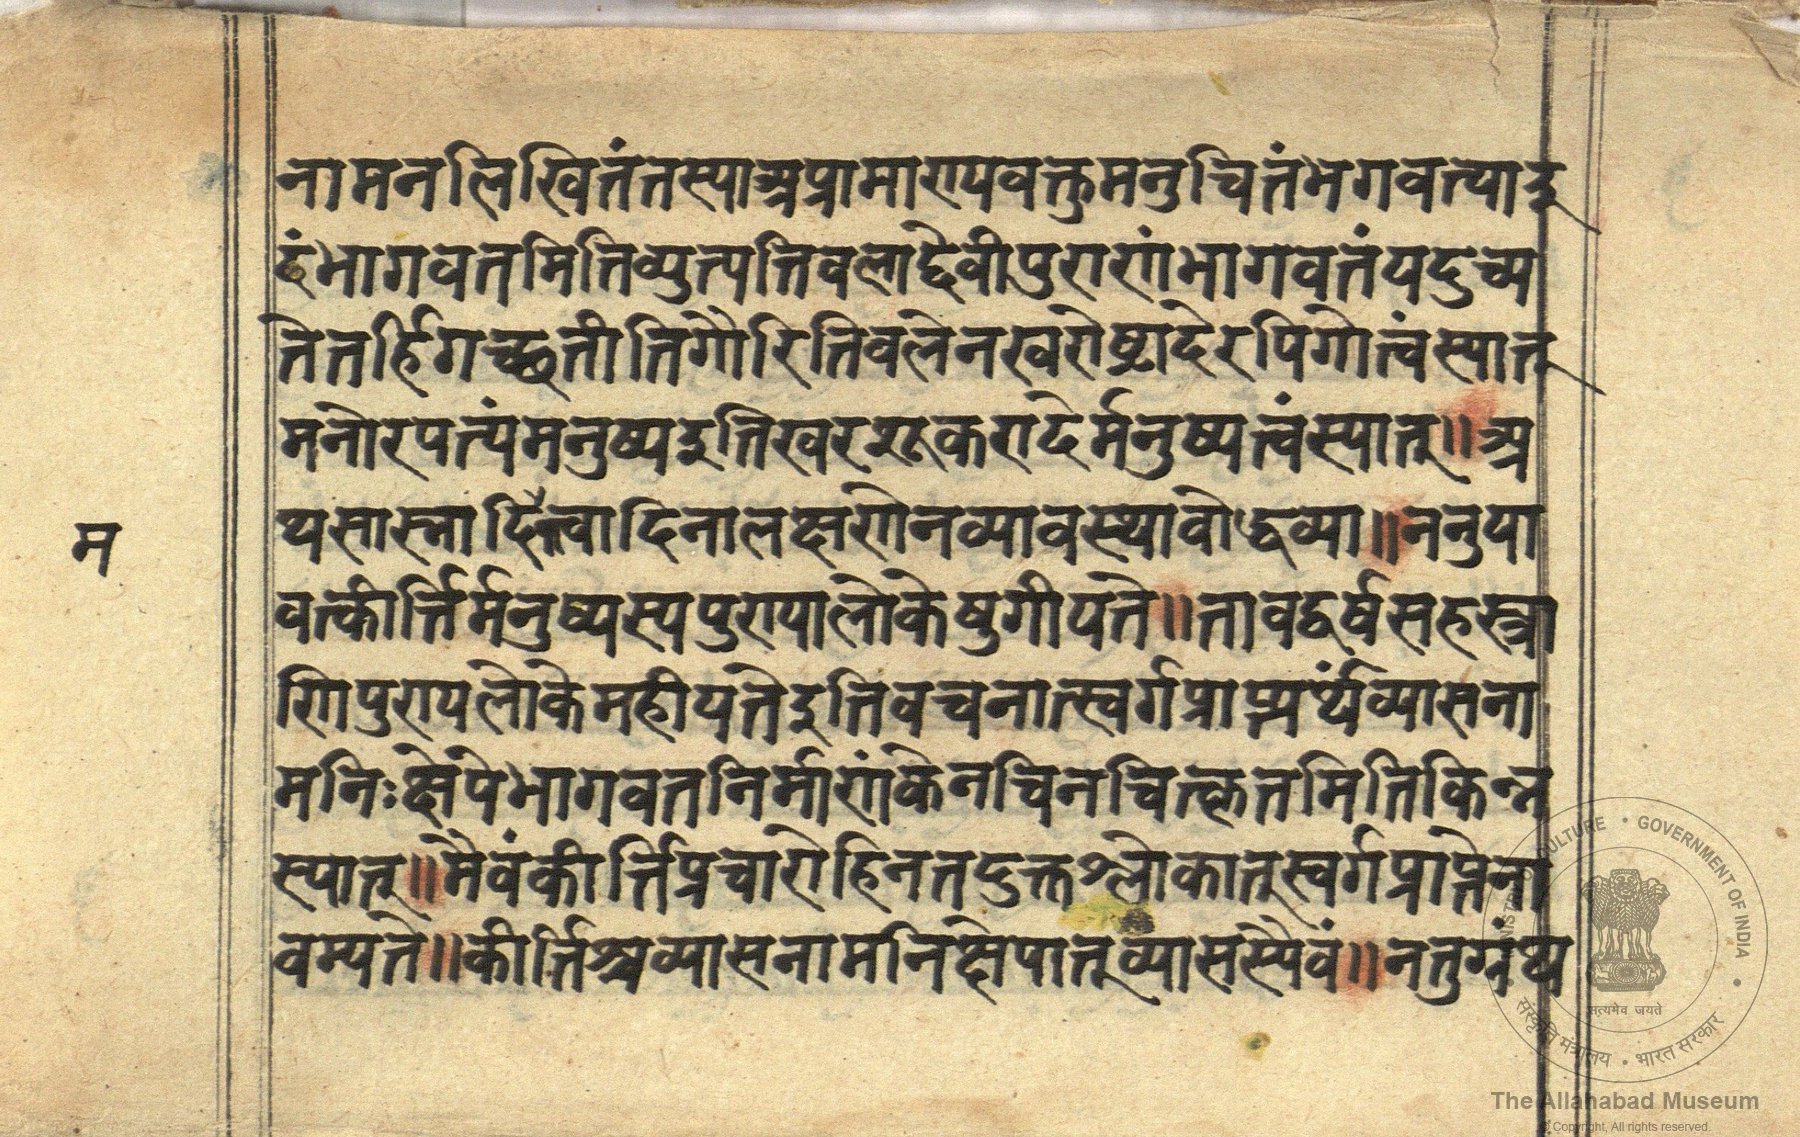 नामनलिखितंतस्याअप्रामाण्यवक्तुमनुचितंभगवत्याइ
दंभागवतमितिव्युत्पत्तिवलाद्देवीपुराणंभागवतंयदुच्य
तेतर्हिगच्छतीतिगौरितिवलेनखरोष्ट्रादेरपिगोत्वंस्यात्
मनोरपत्यंमनुष्यइतिखरशूकरादेर्मनुष्यत्वंस्यात्॥अ
थसास्नादिनालक्षणेनव्यावस्थावोद्धव्या॥ननुया
म
वत्कीर्त्तिर्मनुष्यस्यपुण्यालोकेषुगीयते॥तावद्वर्षसहस्त्रा
णिपुण्यलोकेमहीयतेइतिवचनात्स्वर्गप्राप्त्यर्थंव्यासना
मनिःक्षेपेभागवतनिर्माणंकेनचिनचित्कृतमितिकिन्न
स्यात्॥मैवंकीर्त्तिप्रचारोहिनतदुक्तश्लोकात्स्वर्गप्राप्तेना
वम्यते॥कीर्त्तिश्चव्यासनामनिक्षेपात्व्यासस्यैवं॥नतुग्रंथ
INSTRY OF CULTURE • GOVERNMENT OF INDIA •
सत्यमेव जयते
संस्कृति मंत्रालय • भारत सरकार
The Allahabad Museum
© Copyright, All rights reserved.